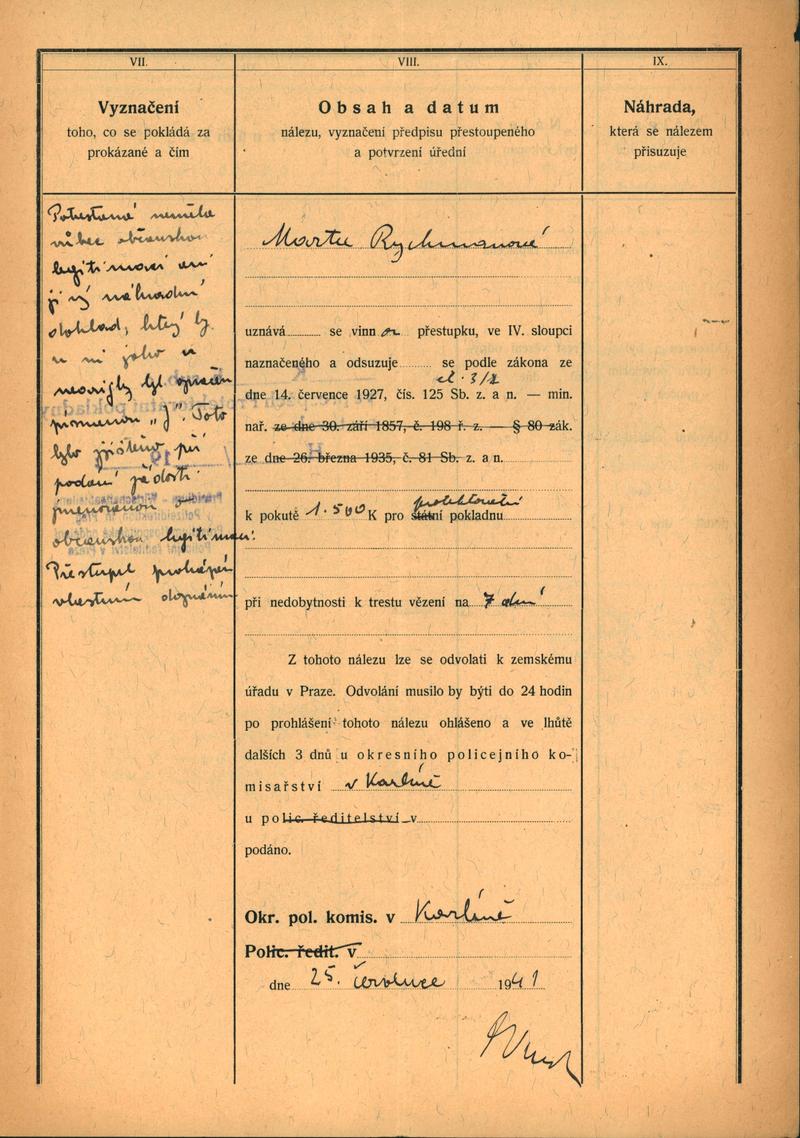 VII.
Vyznačení
toho, co se pokládá za
prokázané a čím
Potrestaná neměla
vůbec občanskou
legitimaci ani
jiný náhradní
doklad, který by
u ní jako u
neárijky byl opatřen
písmenem „J“. Toto
bylo zjištěno při
podání žádosti
jmenované o
občanskou legitimaci.
Přestupek prokázán
vlastním doznáním
VIII.
Obsah a datum
nálezu, vyznačení předpisu přestoupeného
a potvrzení úřední
Marta Rychmanová
uznává se vinn ou přestupku, ve IV. sloupci
naznačeného a odsuzuje se podle zákona ze
čl. 3/2
dne 14. července 1927, čís. 125 Sb. z. a n. — min.
nař. ze dne 30. září 1857, č. 198 ř. z. — § 80 zák.
ze dne 26. března 1935, č. 81 Sb. z. a n.
protektorátní
k pokutě 1.500 K pro státní pokladnu
při nedobytnosti k trestu vězení na 7 dní
Z tohoto nálezu lze se odvolati k zemskému
úřadu v Praze. Odvolání musilo by býti do 24 hodin
po prohlášení tohoto nálezu ohlášeno a ve lhůtě
dalších 3 dnů u okresního policejního ko-
misařství v Karlíně
u polic. ředitelství v
podáno.
Okr. pol. komis. v Karlíně
Polic. ředit. v
dne 25. července 1941
IX.
Náhrada,
která se nálezem
přisuzuje